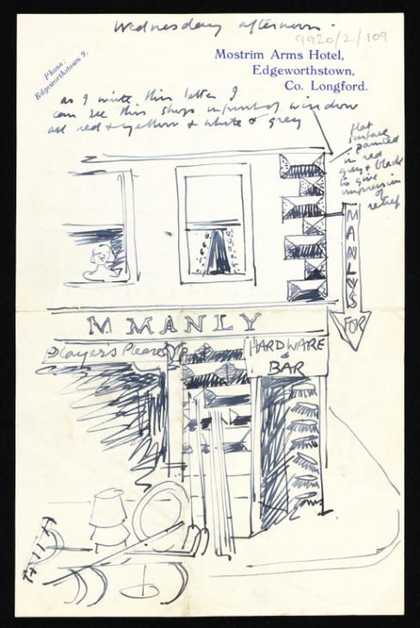 Wednesday afternoon.
9920/2/109
Phone:
Edgeworthstown 9.
Mostrim Arms Hotel,
Edgeworthstown,
Co. Longford.
as I write this letter I
can see this shop in front of window
all red & yellow & white & grey
flat
surface
painted
in red
grey & black
to give
impression
of
relief
MANLYS
FOR
M MANLY
Player's Please
HARDWARE
&
BAR